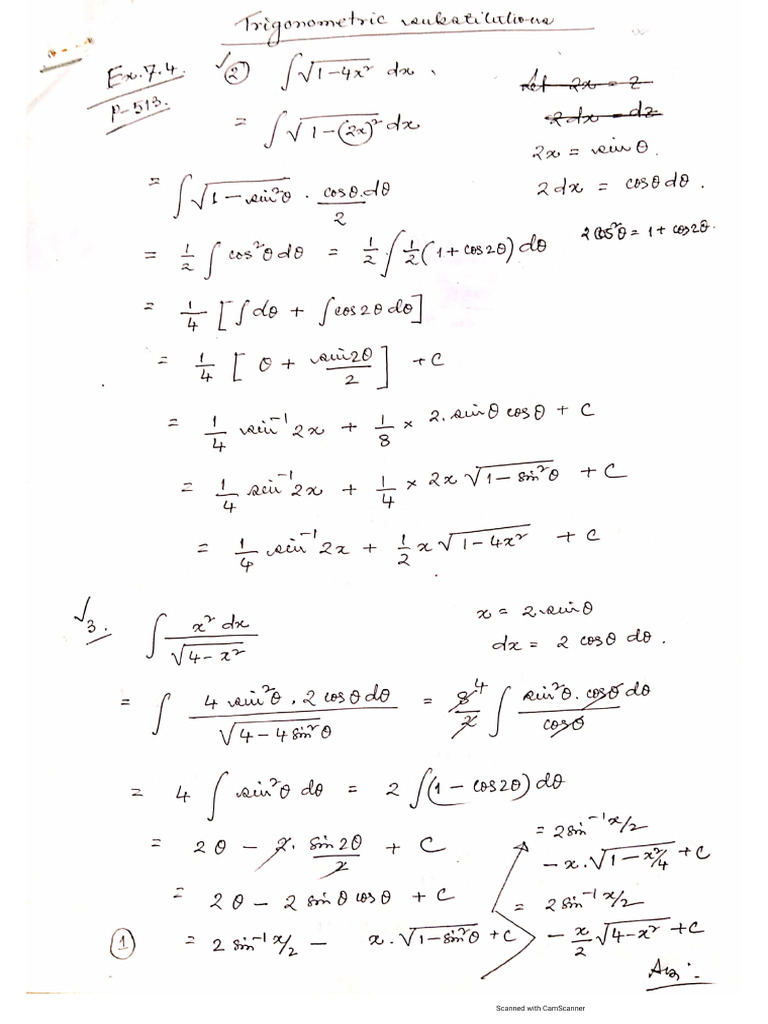 Trigonometric substitutions
Ex. 7.4.
P-513.
✓ ② ∫√(1-4x²) dx.
= ∫√(1-(2x)²) dx
Let 2x = z
2dx = dz
2x = sin θ.
2dx = cosθ dθ.
= ∫√(1-sin²θ) · cosθ.dθ/2
= 1/2 ∫ cos²θ dθ = 1/2 ∫ 1/2 (1+cos2θ) dθ
2cos²θ = 1+cos2θ.
= 1/4 [∫dθ + ∫cos2θ dθ]
= 1/4 [θ + sin2θ/2] + C
= 1/4 sin⁻¹2x + 1/8 × 2.sinθ cosθ + C
= 1/4 sin⁻¹2x + 1/4 × 2x √(1-sin²θ) + C
= 1/4 sin⁻¹2x + 1/2 x√(1-4x²) + C
✓ 3. ∫ x² dx/√(4-x²)
x = 2.sinθ
dx = 2 cosθ dθ.
= ∫ 4 sin²θ . 2 cosθ dθ/√(4-4sin²θ) = 8 4/2 ∫ sin²θ. cosθ dθ/cosθ
= 4 ∫ sin²θ dθ = 2 ∫(1-cos2θ) dθ
= 2θ - 2. sin2θ/2 + C
= 2θ - 2 sinθ cosθ + C
① = 2 sin⁻¹x/2 - x.√(1-sin²θ) + C
= 2sin⁻¹x/2
- x.√(1-x²/4) + C
= 2 sin⁻¹x/2
- x/2 √(4-x²) + C
Ans:
Scanned with CamScanner